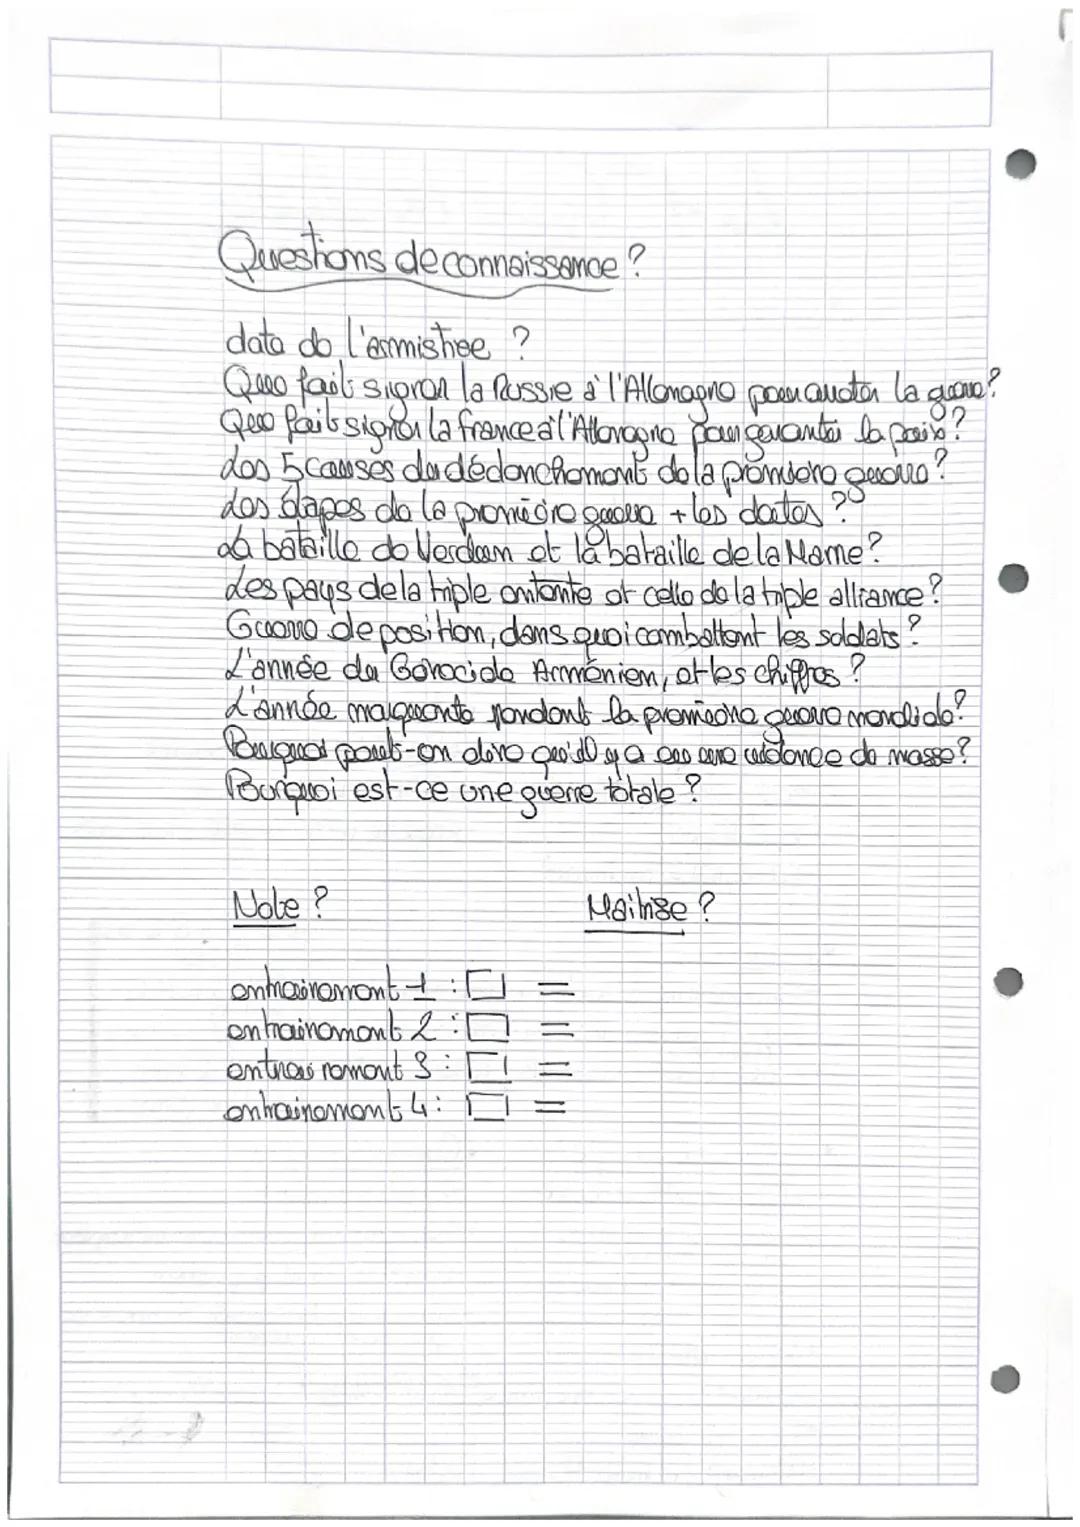 Questions de connaissance ?
date de l'armistice ?
Que fait signer la Russie à l'Allemagne pour arreter la guerre ?
Que fait signer la france à l'Allemagne pour garantir la paix ?
Les 5 causes du déclenchement de la première guerre ?
Les étapes de la première guerre + les dates ?
La bataille de Verdun et la bataille de la Marne ?
Les pays de la triple entante et celle de la triple alliance ?
Guerre de position, dans quoi combattent les soldats ?
L'année du Génocide Arménien, et les chiffres ?
L'année marquante pendant la première guerre mondiale ?
Pourquoi peut-on dire qu'il y a eu une violence de masse ?
Pourquoi est-ce une guerre totale ?
Note ? Maitrise ?
entrainement 1 : =
entrainement 2 : =
entrainement 3 : =
entrainement 4 : =